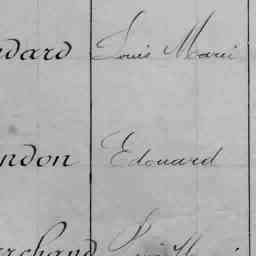 dard Louis Marie
ndon Edouard
rchand